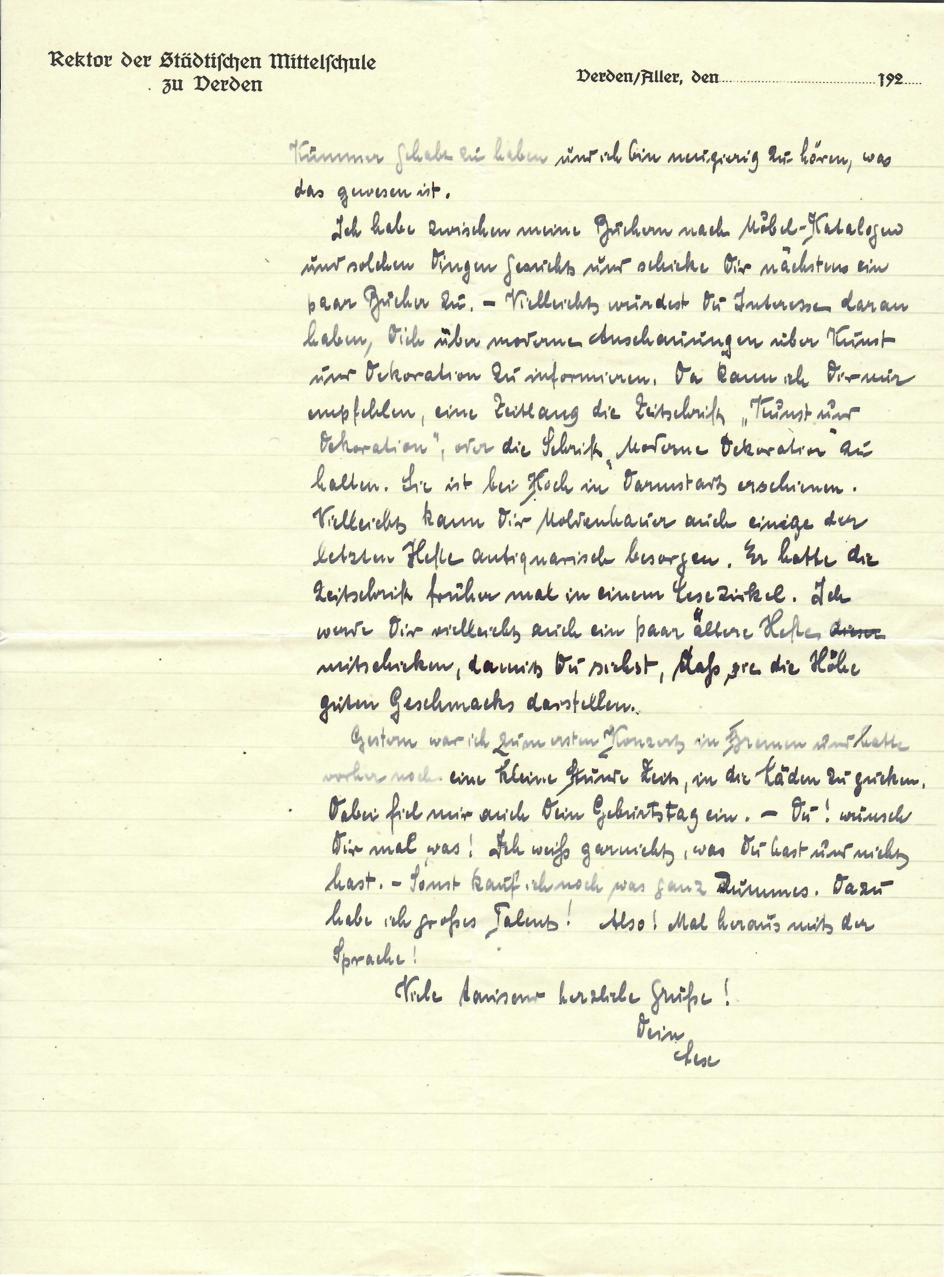 Rektor der Städtischen Mittelschule
zu Verden
Verden/Aller, den 192
Kummer gehabt zu haben und ich bin neugierig zu hören, was
das gewesen ist.
Ich habe zwischen meine Büchern nach Möbel-Katalogen
und solchen Dingen gesucht und schicke Dir nächstens ein
paar Bücher zu. – Vielleicht würdest Du Interesse daran
haben, Dich über moderne Anschauungen über Kunst
und Dekoration zu informieren. Da kann ich Dir nur
empfehlen, eine Zeitlang die Zeitschrift „Kunst und
Dekoration", oder die Schrift „Moderne Dekoration" zu
halten. Sie ist bei Koch in Darmstadt erschienen.
Vielleicht kann Dir Moldenhauer auch einige der
letzten Hefte antiquarisch besorgen. Er hatte die
Zeitschrift früher mal in einem Lesezirkel. Ich
werde Dir vielleicht auch ein paar ältere Hefte diese
mitschicken, damit Du siehst, daß sie die Höhe
guten Geschmacks darstellen.
Gestern war ich zum ersten Konzert in Bremen und hatte
vorher noch eine kleine Stunde Zeit, in die Läden zu gucken.
Dabei fiel mir auch Dein Geburtstag ein. – Du! wünsch
Dir mal was! Ich weiß garnicht, was Du hast und nicht
hast. – Sonst kauf ich noch was ganz Dummes. Dazu
habe ich großes Talent! Also! Mal heraus mit der
Sprache!
Viele tausend herzliche Grüße!
Dein